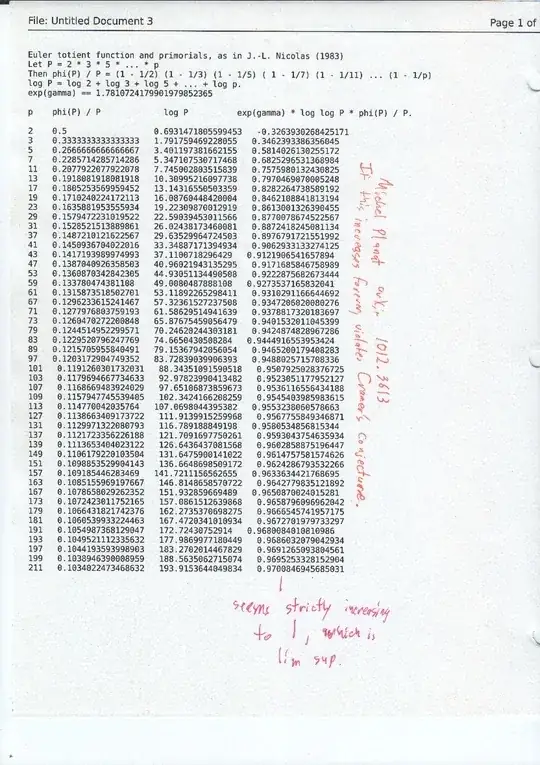 File: Untitled Document 3
Page 1 of
Euler totient function and primorials, as in J.-L. Nicolas (1983)
Let P = 2 * 3 * 5 * ... * p
Then phi(P) / P = (1 - 1/2) (1 - 1/3) (1 - 1/5) ( 1 - 1/7) (1 - 1/11) ... (1 - 1/p)
log P = log 2 + log 3 + log 5 + ... + log p.
exp(gamma) == 1.7810724179901979852365
p phi(P) / P log P exp(gamma) * log log P * phi(P) / P.
2 0.5 0.6931471805599453 -0.3263930268425171
3 0.3333333333333333 1.791759469228055 0.3462393386356045
5 0.2666666666666667 3.401197381662155 0.5814026130255172
7 0.2285714285714286 5.347107530717468 0.6825296531368984
11 0.2077922077922078 7.745002803515839 0.7575980132430825
13 0.1918081918081918 10.30995216097738 0.7970469070005248
17 0.1805253569959452 13.14316550503359 0.8282264738589192
19 0.1710240224172113 16.08760448420004 0.8462108841813194
23 0.1635881953555934 19.22309870012919 0.8613001326390455
29 0.1579472231019522 22.59039453011566 0.8770078674522567
31 0.1528521513889861 26.02438173460081 0.8872418245081134
37 0.1487210121622567 29.63529964724503 0.8976791721551992
41 0.1450936704022016 33.34887171394934 0.9062933133274125
43 0.1417193989974993 37.1100718296424 0.9121906541657894
47 0.1387040926358503 40.96021943135295 0.9171685846758989
53 0.1360870342842305 44.93051134490508 0.9222875682673444
59 0.133780474381108 49.0080487888108 0.9273537165832041
61 0.1315873518502701 53.11892265298411 0.9310291166644692
67 0.1296233615241467 57.32361527237508 0.9347206820080276
71 0.1277976803759193 61.58629514941639 0.9378817320183697
73 0.1260470272200848 65.87675459056479 0.9401532011045399
79 0.1244514952299571 70.24620244303181 0.9424874828967286
83 0.1229520796247769 74.6650430508284 0.9444916553953424
89 0.1215705955840491 79.15367942056054 0.946520179408283
97 0.1203172904749352 83.72839039906393 0.948802571570833
101 0.1191260301732031 88.34351091590518 0.9507925028376725
103 0.1179694667734633 92.9782399013482 0.9523051177952127
107 0.1168669483924029 97.65106873859673 0.9536116556434188
109 0.1157947745539405 102.3424166208259 0.9545403985983615
113 0.114770042035764 107.0698044395382 0.9553238060578663
127 0.1138663409173722 111.9139915259968 0.9567755849346871
131 0.1129971322080793 116.789188849198 0.9580534856815344
137 0.1121723356226188 121.7091697750261 0.9593043754635934
139 0.1113653404023122 126.6436437081568 0.9602858875196447
149 0.1106179220103504 131.6475900141022 0.9614757581574626
151 0.1098853529904143 136.6648698509172 0.9624286793532266
157 0.109185446283469 141.7211156562655 0.9633634421768695
163 0.1085155969197667 146.8148658570722 0.9642779835121892
167 0.1078658029262352 151.932859669489 0.9650870024015281
173 0.1072423011752165 157.0861512639868 0.9658796096962042
179 0.1066431821742376 162.2735370698275 0.9666545741957175
181 0.1060539933224463 167.4720341010934 0.9672701979733297
191 0.1054987368129047 172.72430752914 0.9680084010810986
193 0.1049521112335632 177.9869977180449 0.9686032079042934
197 0.1044193593998903 183.2702014467829 0.9691265093804561
199 0.1038946390008959 188.5635062715074 0.9695253328152904
211 0.1034022473468632 193.9153644049834 0.9700846945685031
Michel Planat arxiv 1012.3613
If this increases forever, violates Cramer's conjecture.
seems strictly increasing
to 1, which is
lim sup.